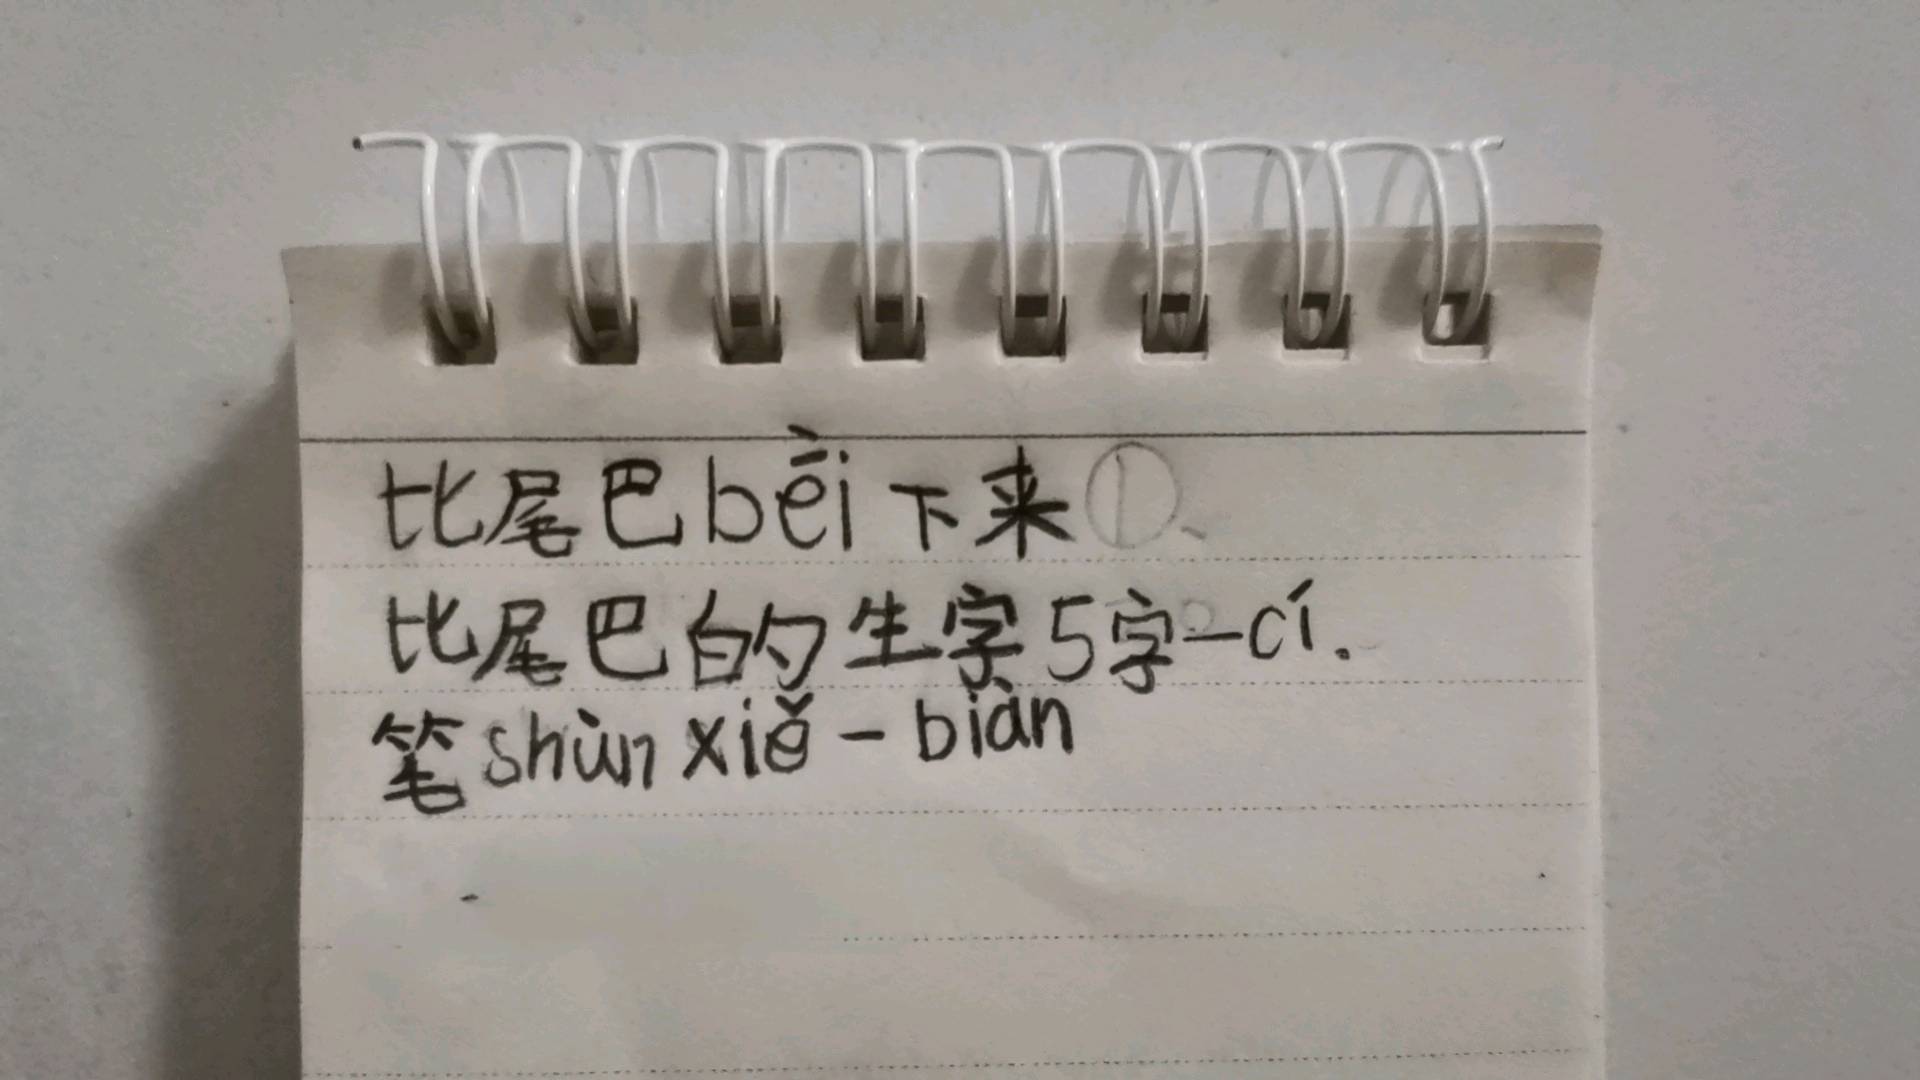 比尾巴bēi下来①、
比尾巴的生字5字一cí.
笔shùn xiě一biàn